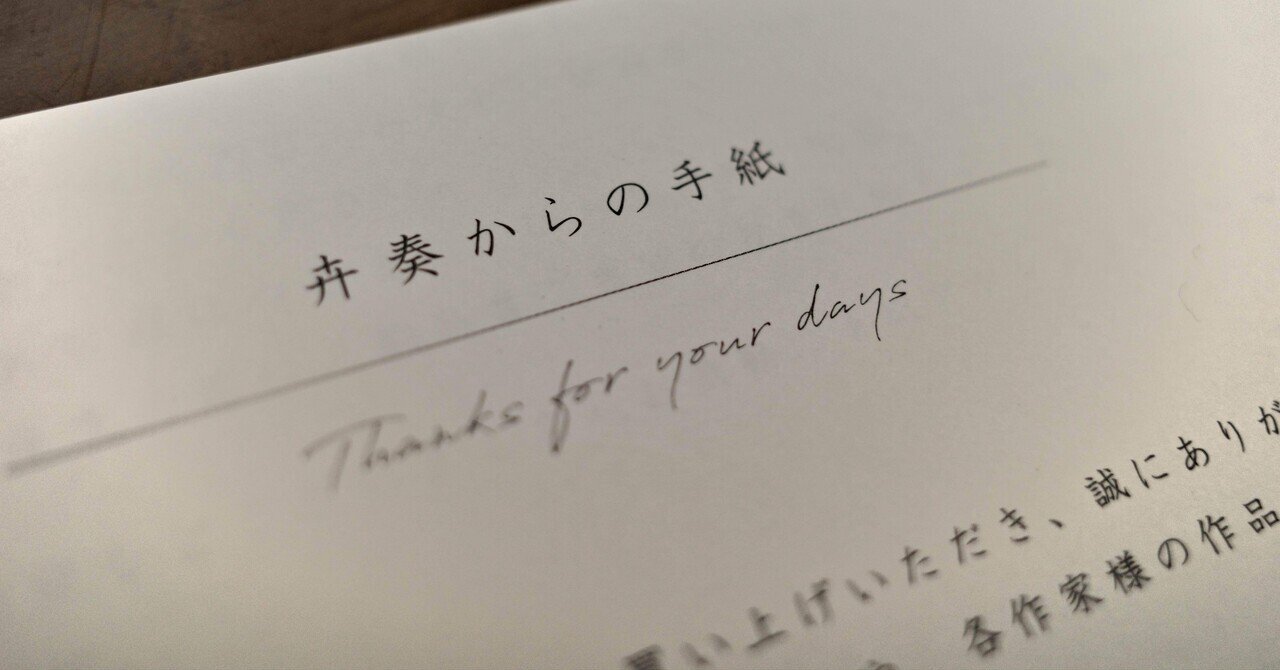 卉奏からの手紙
Thanks for your days
買い上げいただき、誠にありが
各作家様の作品